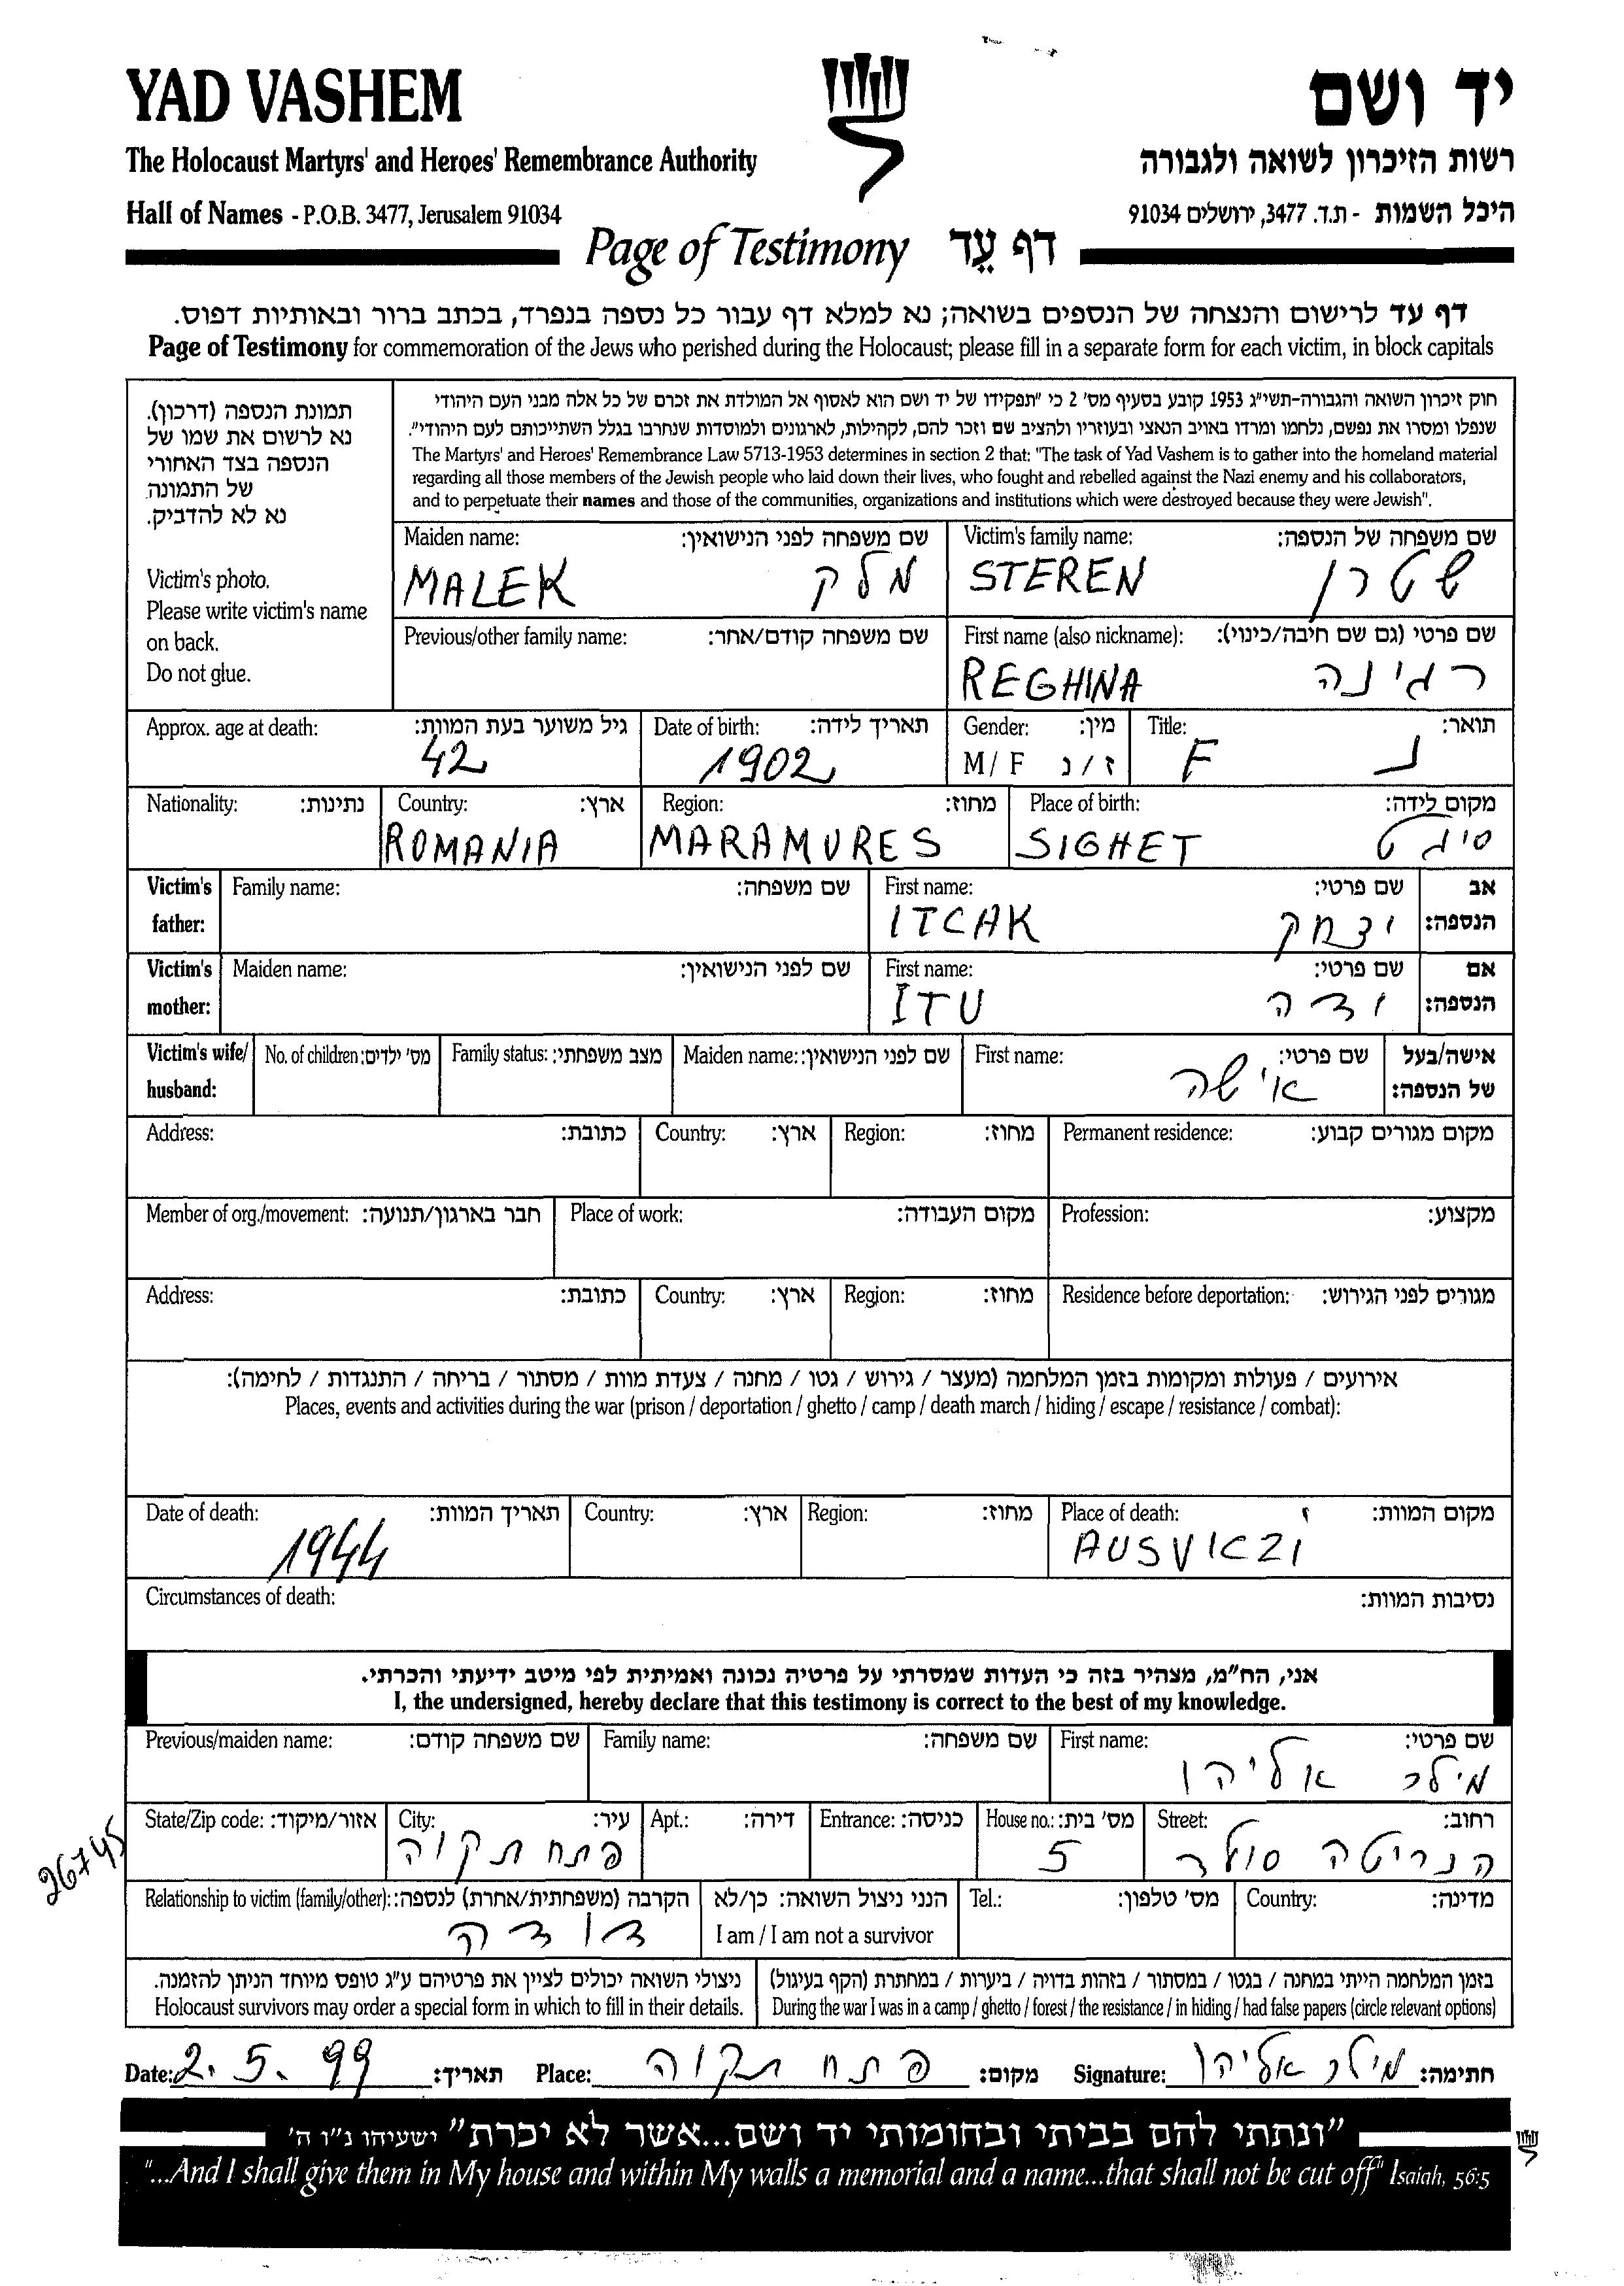 YAD VASHEM יד ושם
The Holocaust Martyrs' and Heroes' Remembrance Authority רשות הזיכרון לשואה ולגבורה
Hall of Names - P.O.B. 3477, Jerusalem 91034 היכל השמות - ת.ד. 3477, ירושלים 91034
Page of Testimony דף עֵד
דף עד לרישום והנצחה של הנספים בשואה; נא למלא דף עבור כל נספה בנפרד, בכתב ברור ובאותיות דפוס.
Page of Testimony for commemoration of the Jews who perished during the Holocaust; please fill in a separate form for each victim, in block capitals
תמונת הנספה (דרכון).
נא לרשום את שמו של
הנספה בצד האחורי
של התמונה
נא לא להדביק.
Victim's photo.
Please write victim's name
on back.
Do not glue.
חוק זיכרון השואה והגבורה-תשי"ג 1953 קובע בסעיף מס' 2 כי "תפקידו של יד ושם הוא לאסוף אל המולדת את זכרם של כל אלה מבני העם היהודי
שנפלו ומסרו את נפשם, נלחמו ומרדו באויב הנאצי ובעוזריו ולהציב שם וזכר להם, לקהילות, לארגונים ולמוסדות שנחרבו בגלל השתייכותם לעם היהודי".
The Martyrs' and Heroes' Remembrance Law 5713-1953 determines in section 2 that: "The task of Yad Vashem is to gather into the homeland material
regarding all those members of the Jewish people who laid down their lives, who fought and rebelled against the Nazi enemy and his collaborators,
and to perpetuate their names and those of the communities, organizations and institutions which were destroyed because they were Jewish".
Maiden name: שם משפחה לפני הנישואין: Victim's family name: שם משפחה של הנספה:
MALEK מלק STEREN שטרן
Previous/other family name: שם משפחה קודם/אחר: First name (also nickname): שם פרטי (גם שם חיבה/כינוי):
REGHINA רגינה
Approx. age at death: גיל משוער בעת המוות: Date of birth: תאריך לידה: Gender: מין: Title: תואר:
42 1902 M / F ז / נ F נ
Nationality: נתינות: Country: ארץ: Region: מחוז: Place of birth: מקום לידה:
ROMANIA MARAMURES SIGHET סיגט
Victim's father: Family name: שם משפחה: First name: שם פרטי: אב הנספה:
ITCAK יצחק
Victim's mother: Maiden name: שם לפני הנישואין: First name: שם פרטי: אם הנספה:
ITU
Victim's wife/ husband: No. of children: מס' ילדים: Family status: מצב משפחתי: Maiden name: שם לפני הנישואין: First name: שם פרטי: אישה/בעל של הנספה:
אישה
Address: כתובת: Country: ארץ: Region: מחוז: Permanent residence: מקום מגורים קבוע:
Member of org./movement: חבר בארגון/תנועה: Place of work: מקום העבודה: Profession: מקצוע:
Address: כתובת: Country: ארץ: Region: מחוז: Residence before deportation: מגורים לפני הגירוש:
אירועים / פעולות ומקומות בזמן המלחמה (מעצר / גירוש / גטו / מחנה / צעדת מוות / מסתור / בריחה / התנגדות / לחימה):
Places, events and activities during the war (prison / deportation / ghetto / camp / death march / hiding / escape / resistance / combat):
Date of death: תאריך המוות: Country: ארץ: Region: מחוז: Place of death: מקום המוות:
1944 AUSVICZI
Circumstances of death: נסיבות המוות:
אני, הח"מ, מצהיר בזה כי העדות שמסרתי על פרטיה נכונה ואמיתית לפי מיטב ידיעתי והכרתי.
I, the undersigned, hereby declare that this testimony is correct to the best of my knowledge.
Previous/maiden name: שם משפחה קודם: Family name: שם משפחה: First name: שם פרטי:
מילר אליהו
State/Zip code: אזור/מיקוד: City: עיר: Apt.: דירה: Entrance: כניסה: House no.: מס' בית: Street: רחוב:
26745 פתח תקוה 5 הנריטה סולד
Relationship to victim (family/other): הקרבה (משפחתית/אחרת) לנספה: הנני ניצול השואה: כן/לא Tel.: מס' טלפון: Country: מדינה:
דודה I am / I am not a survivor
ניצולי השואה יכולים לציין את פרטיהם ע"ג טופס מיוחד הניתן להזמנה. בזמן המלחמה הייתי במחנה / בגטו / במסתור / בזהות בדויה / ביערות / במחתרת (הקף בעיגול)
Holocaust survivors may order a special form in which to fill in their details. During the war I was in a camp / ghetto / forest / the resistance / in hiding / had false papers (circle relevant options)
Date: 2.5.99 תאריך: Place: פתח תקוה מקום: Signature: מילר אליהו חתימה:
"ונתתי להם בביתי ובחומותי יד ושם...אשר לא יכרת" ישעיהו נ"ו ה'
"...And I shall give them in My house and within My walls a memorial and a name...that shall not be cut off" Isaiah, 56:5